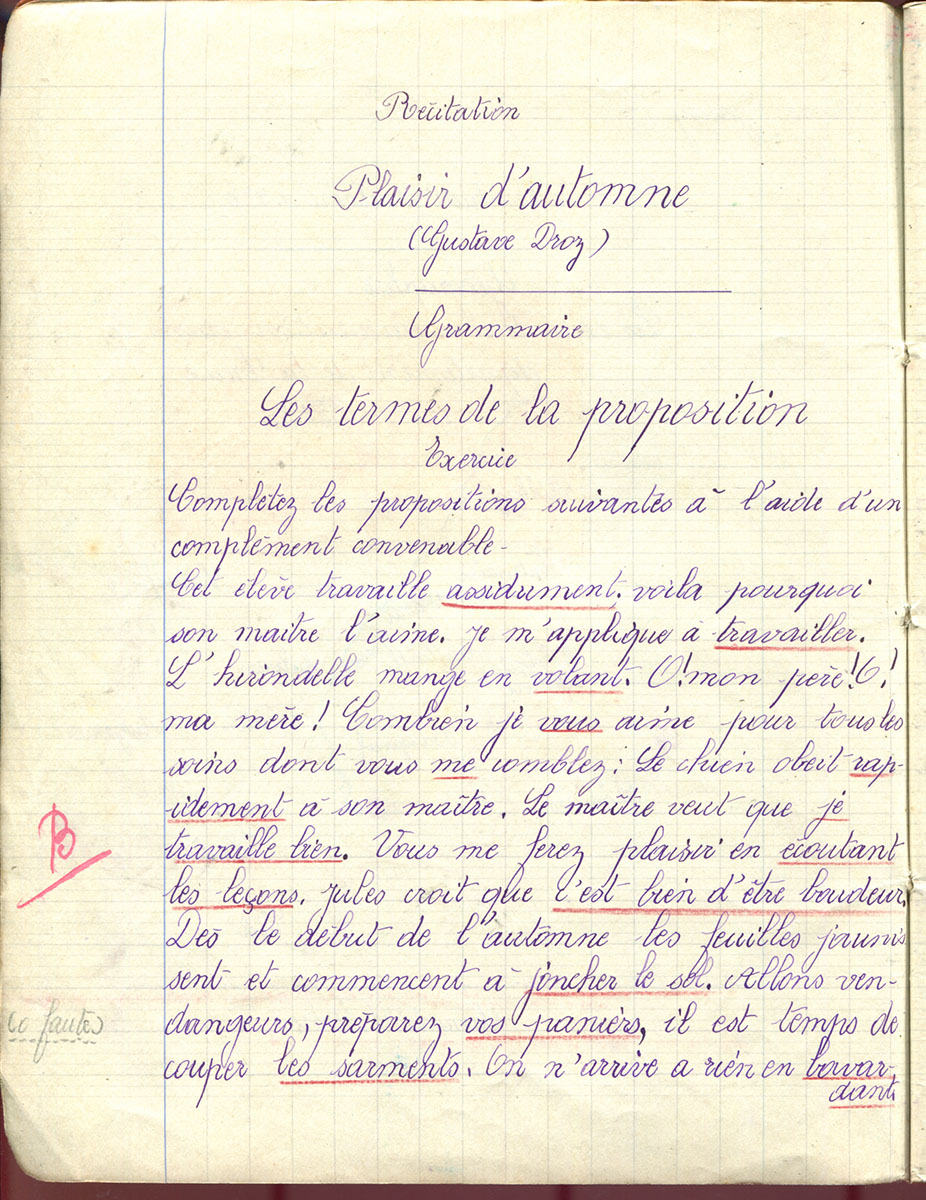 Récitation
Plaisir d'automne
(Gustave Droz)
Grammaire
Les termes de la proposition
Exercice
Complétez les propositions suivantes à l'aide d'un
complément convenable.
Cet élève travaille assidument. voila pourquoi
son maitre l'aime. Je m'applique à travailler.
L'hirondelle mange en volant. O! mon père! O!
ma mère! Combien je vous aime pour tous les
soins dont vous me comblez: Le chien obeit rap-
idement à son maître. Le maître veut que je
travaille bien. Vous me ferez plaisir en écoutant
les leçons. Jules croit que c'est bien d'être boudeur.
Dès le début de l'automne les feuilles jaunis
sent et commencent à joncher le sol. Allons ven-
dangeurs, préparez vos paniers, il est temps de
couper les sarments. On n'arrive a rien en bavar-
dant.
B
fautes